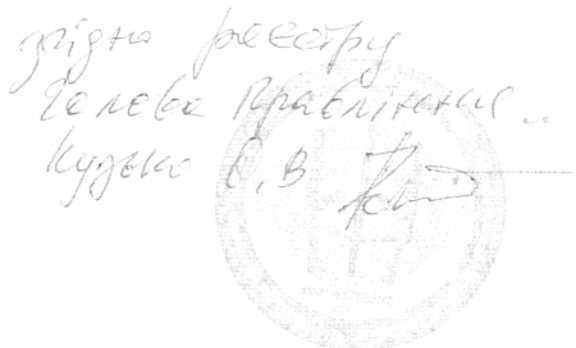 згідно реєстру
Голова Правління
Кудько О.В